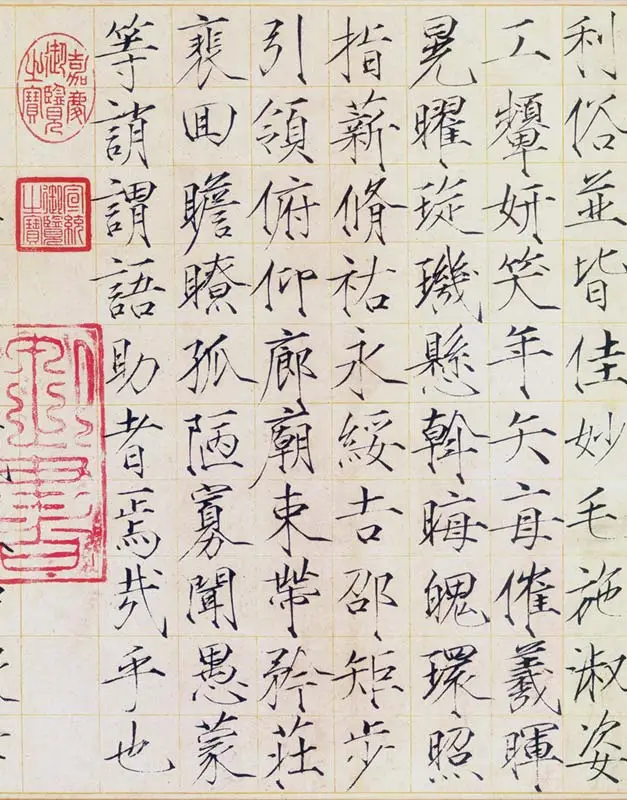 利俗並皆佳妙毛施淑姿
工顰妍笑年矢每催羲暉
晃曜琁璣懸斡晦魄環照
指薪脩祐永綏吉邵矩步
引領俯仰廊廟束帶矜莊
裵回瞻瞭孤陋寡聞愚蒙
等誚謂語助者焉哉乎也
嘉慶御覽之寶
宣統御覽之寶